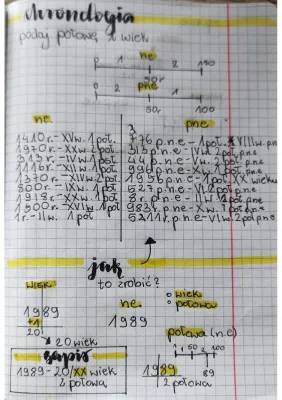 chronologia
podaj połowę i wiek
ne
0 1 2 100
50r
pne
0 2 1 100
50r
ne.
1410r.-XVw. 1 poł.
1970r.-XXw. 2 poł
313r.-IVw. 1 poł
1116r.-XIIw. 1 poł.
1370r.-XIVw. 2 poł
800r.- IXw. 1 poł
1918r.-XXw. 1 poł
1500r.-XVIw. 1 poł
1r.-IIw. 1 poł
pne
776 p.n.e-1 poł.
315 p.n.e-IVw. 2 poł. pne
44 p.n.e-Vw. 2 poł. pne
990 p.n.e-Xw. 1 poł.
1956 p.n.e-1 poł. XX wieku
527 p.n.e-VI 2 poł pne
8 r. p.n.e-IIw. 2 poł
983r. pne-Xw. 1 poł
5211r. p.n.e-VIw. 2 poł pne
jak
to zrobić?
wiek
1989
+1
20
20 wiek
zapis
1989-20/XX wiek
2 połowa
ne.
1989
wiek
połowa
połowa (n.e)
1 50 2 100
89
1989
2 połowa